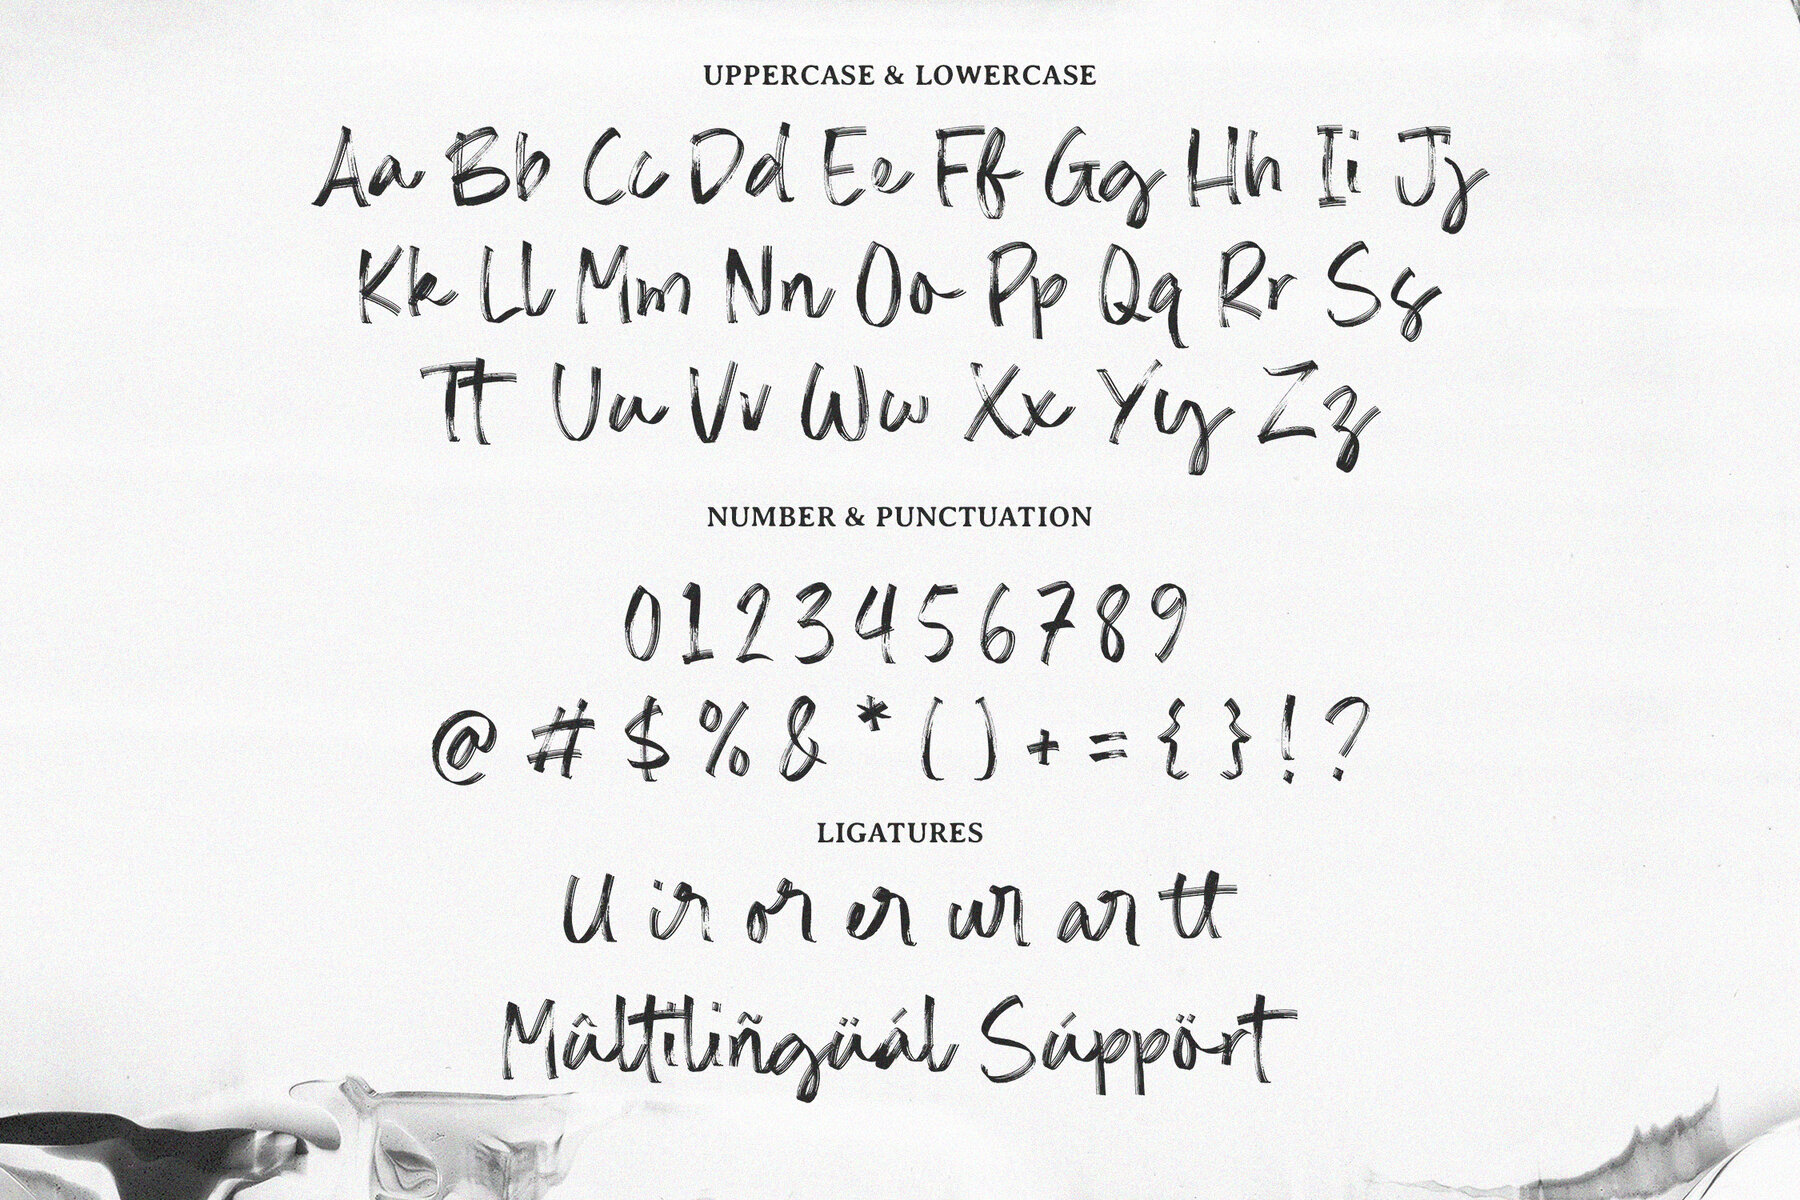 UPPERCASE & LOWERCASE
Aa Bb Cc Dd Ee Ff Gg Hh Ii Jj
Kk Ll Mm Nn Oo Pp Qq Rr Ss
Tt Uu Vv Ww Xx Yy Zz
NUMBER & PUNCTUATION
0 1 2 3 4 5 6 7 8 9
@ # $ % & * ( ) + = { } ! ?
LIGATURES
ll ir or er ur ar tt
Mûltïlïñgüál Súppört